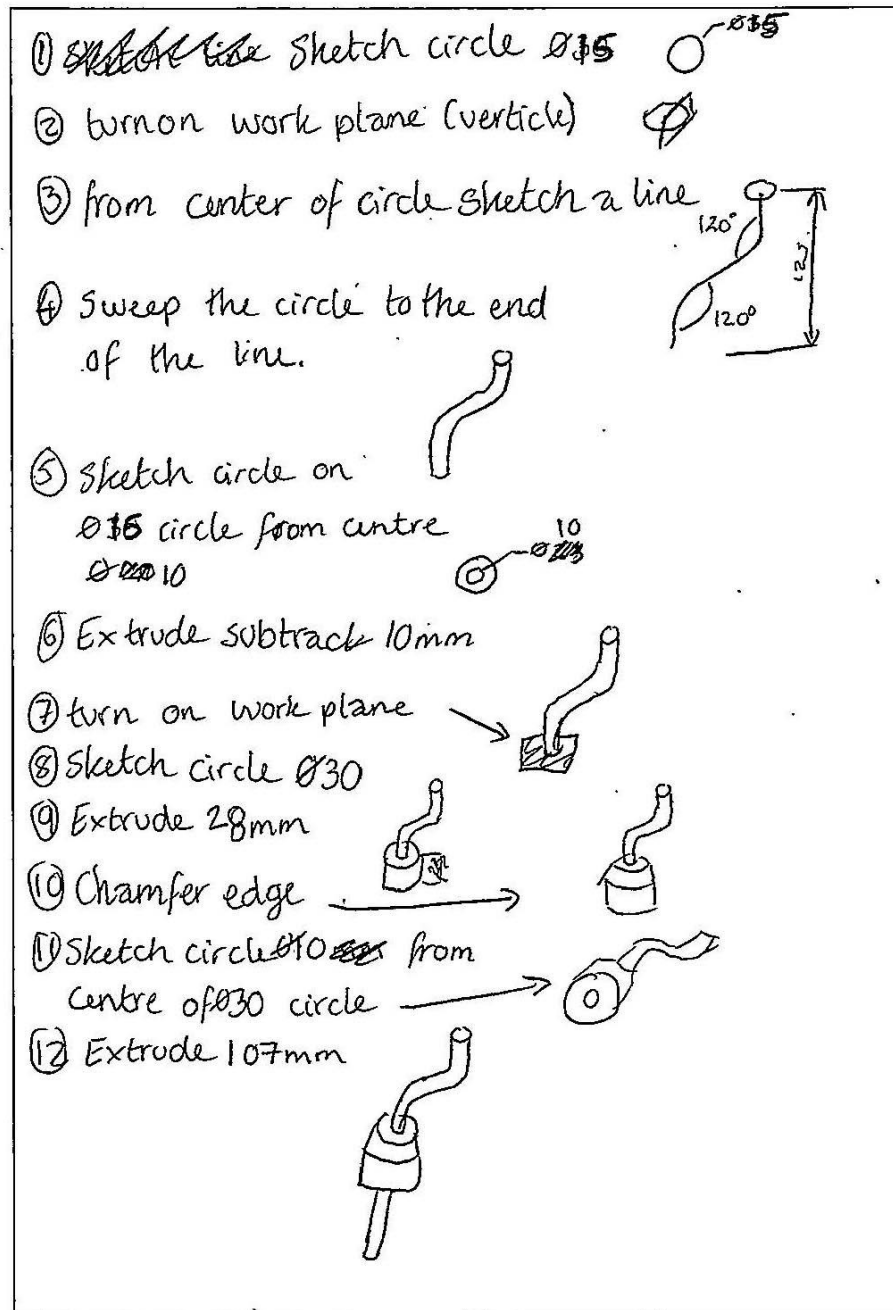 ① Sketch circle Ø15 Ø15
② turn on work plane (verticle)
③ from center of circle sketch a line
120°
125
120°
④ Sweep the circle to the end
of the line.
⑤ Sketch circle on
Ø15 circle from centre
Ø 10
10
Ø
⑥ Extrude subtrack 10mm
⑦ turn on work plane
⑧ Sketch circle Ø30
⑨ Extrude 28mm
⑩ Chamfer edge
⑪ Sketch circle Ø10 from
Centre of Ø30 circle
⑫ Extrude 107mm